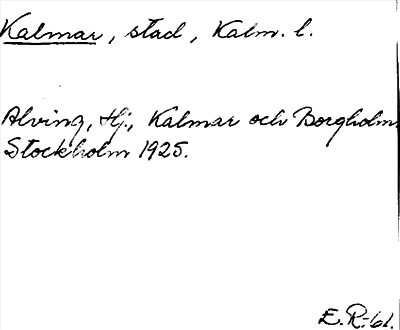 Kalmar, stad, Kalm. l.
Alving, Hj., Kalmar och Borgholm.
Stockholm 1925.
E. R-61.